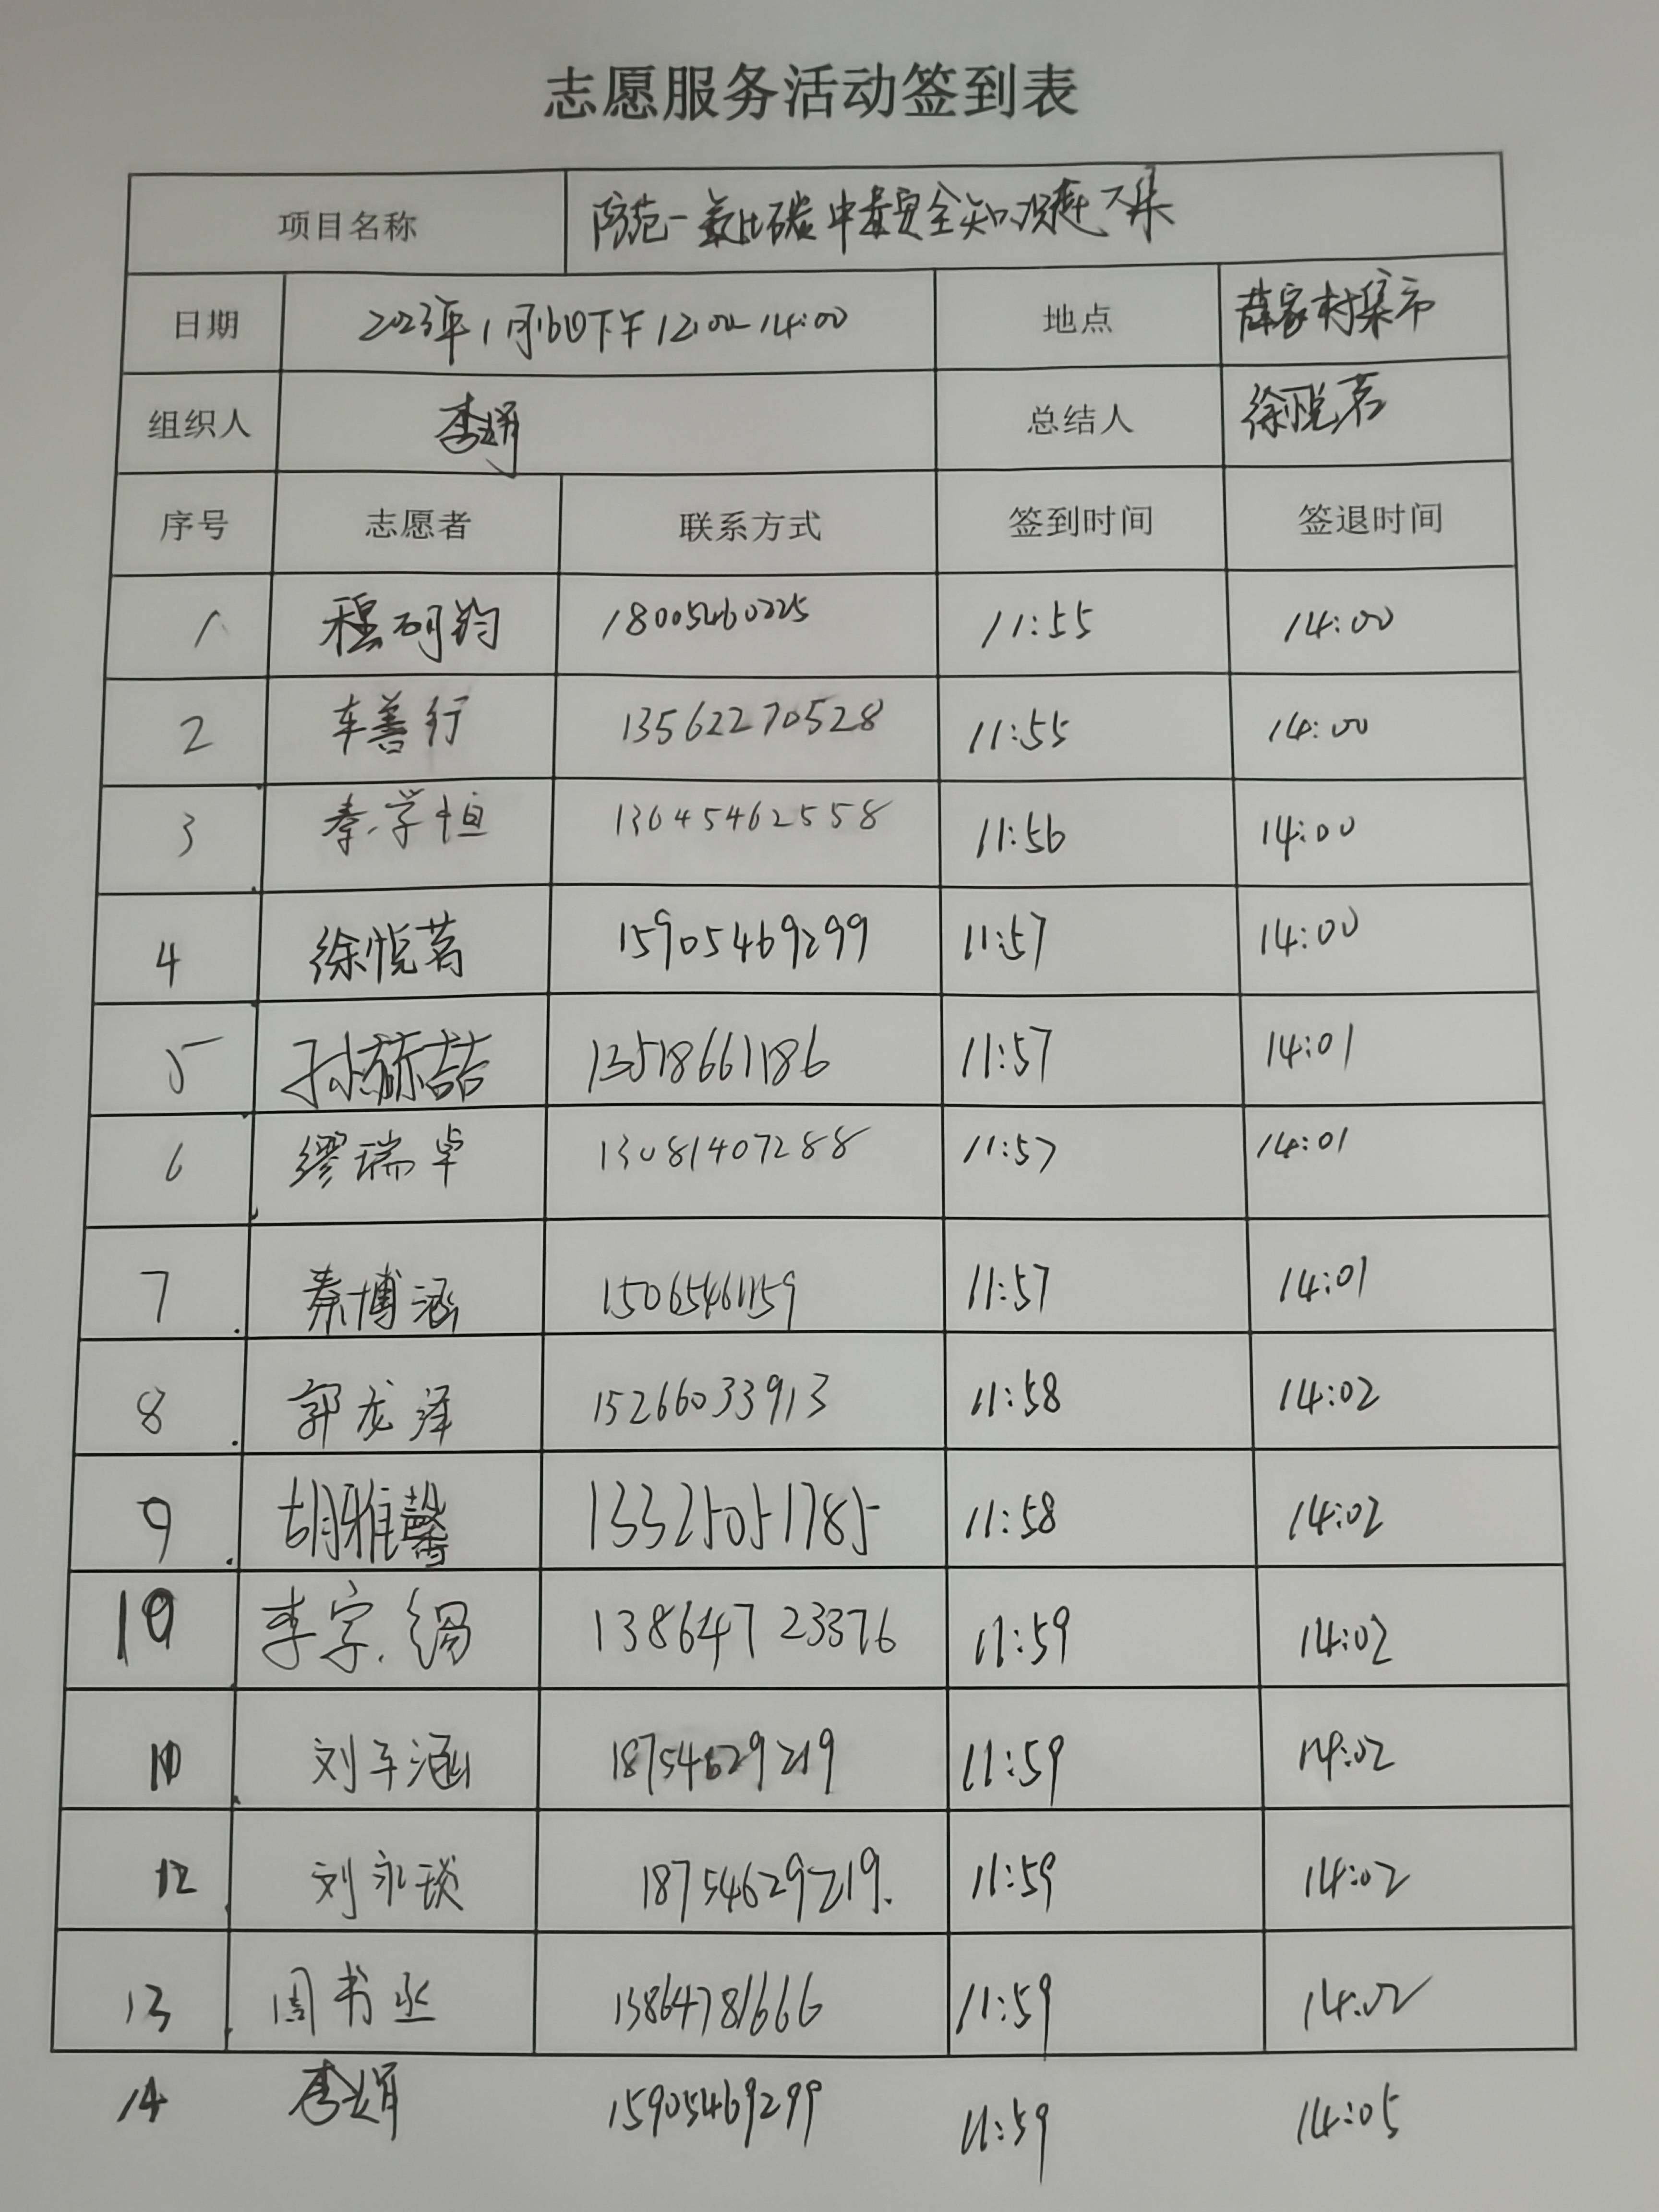 志愿服务活动签到表
项目名称 防范一氧化碳中毒安全知识赶大集
日期 2023年1月16日下午12:00-14:00 地点 薛家村集市
组织人 李娟 总结人 徐悦茗
序号 志愿者 联系方式 签到时间 签退时间
1 程砚钧 18005460225 11:55 14:00
2 车善行 13562270528 11:55 14:00
3 秦学恒 13645462558 11:56 14:00
4 徐悦茗 15905469299 11:57 14:00
5 孙赫喆 13518661186 11:57 14:01
6 缪瑞卓 13081407288 11:57 14:01
7 秦博涵 15065461159 11:57 14:01
8 郭龙泽 15266033913 11:58 14:02
9 胡雅馨 13325051785 11:58 14:02
10 李字 13864723376 11:59 14:02
刘子涵 18754629219 11:59 14:02
12 刘永琰 18754629219. 11:59 14:02
13 周书丞 13864781666 11:59 14:02
14 李娟 15905469299 11:59 14:05